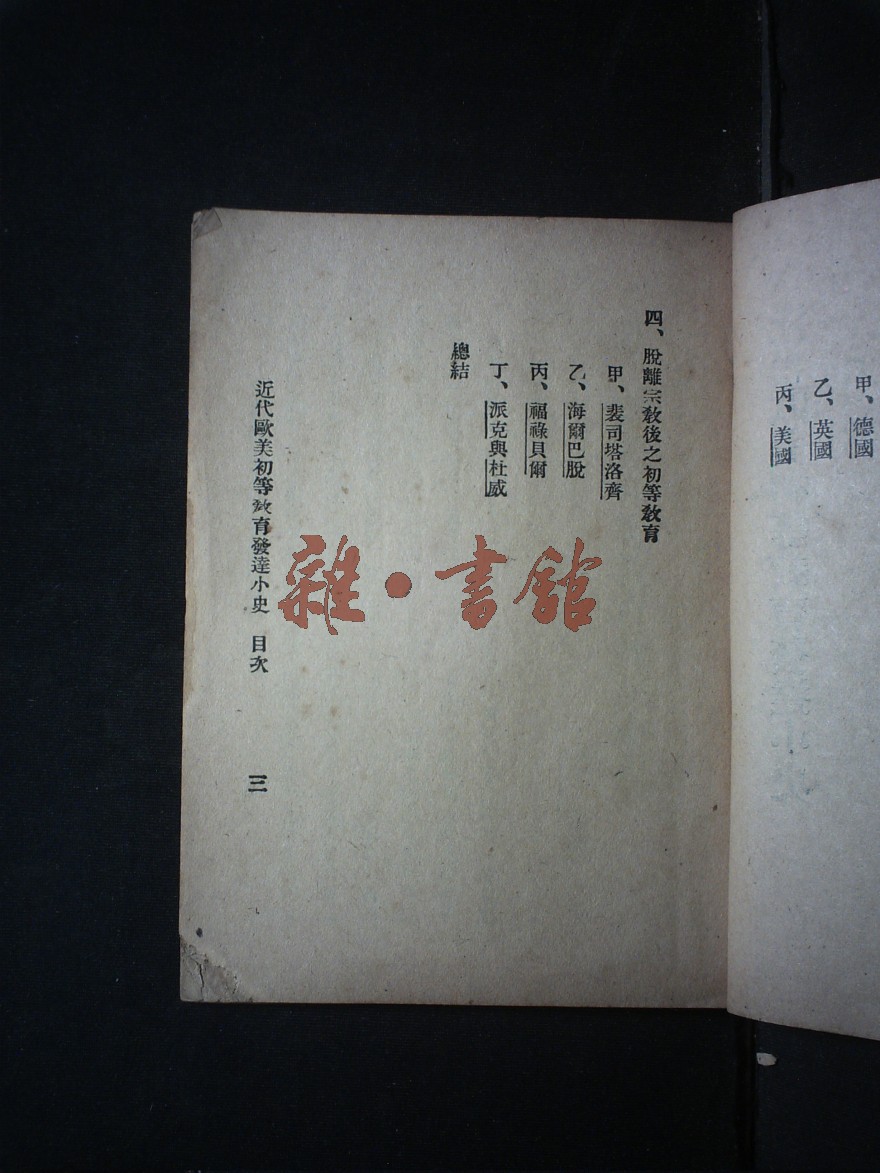 甲、德國
乙、英國
丙、美國
四、脫離宗教後之初等教育
甲、裴司塔洛齊
乙、海爾巴脫
丙、福祿貝爾
丁、派克與杜威
總結
近代歐美初等教育發達小史 目次
三
雜·書館